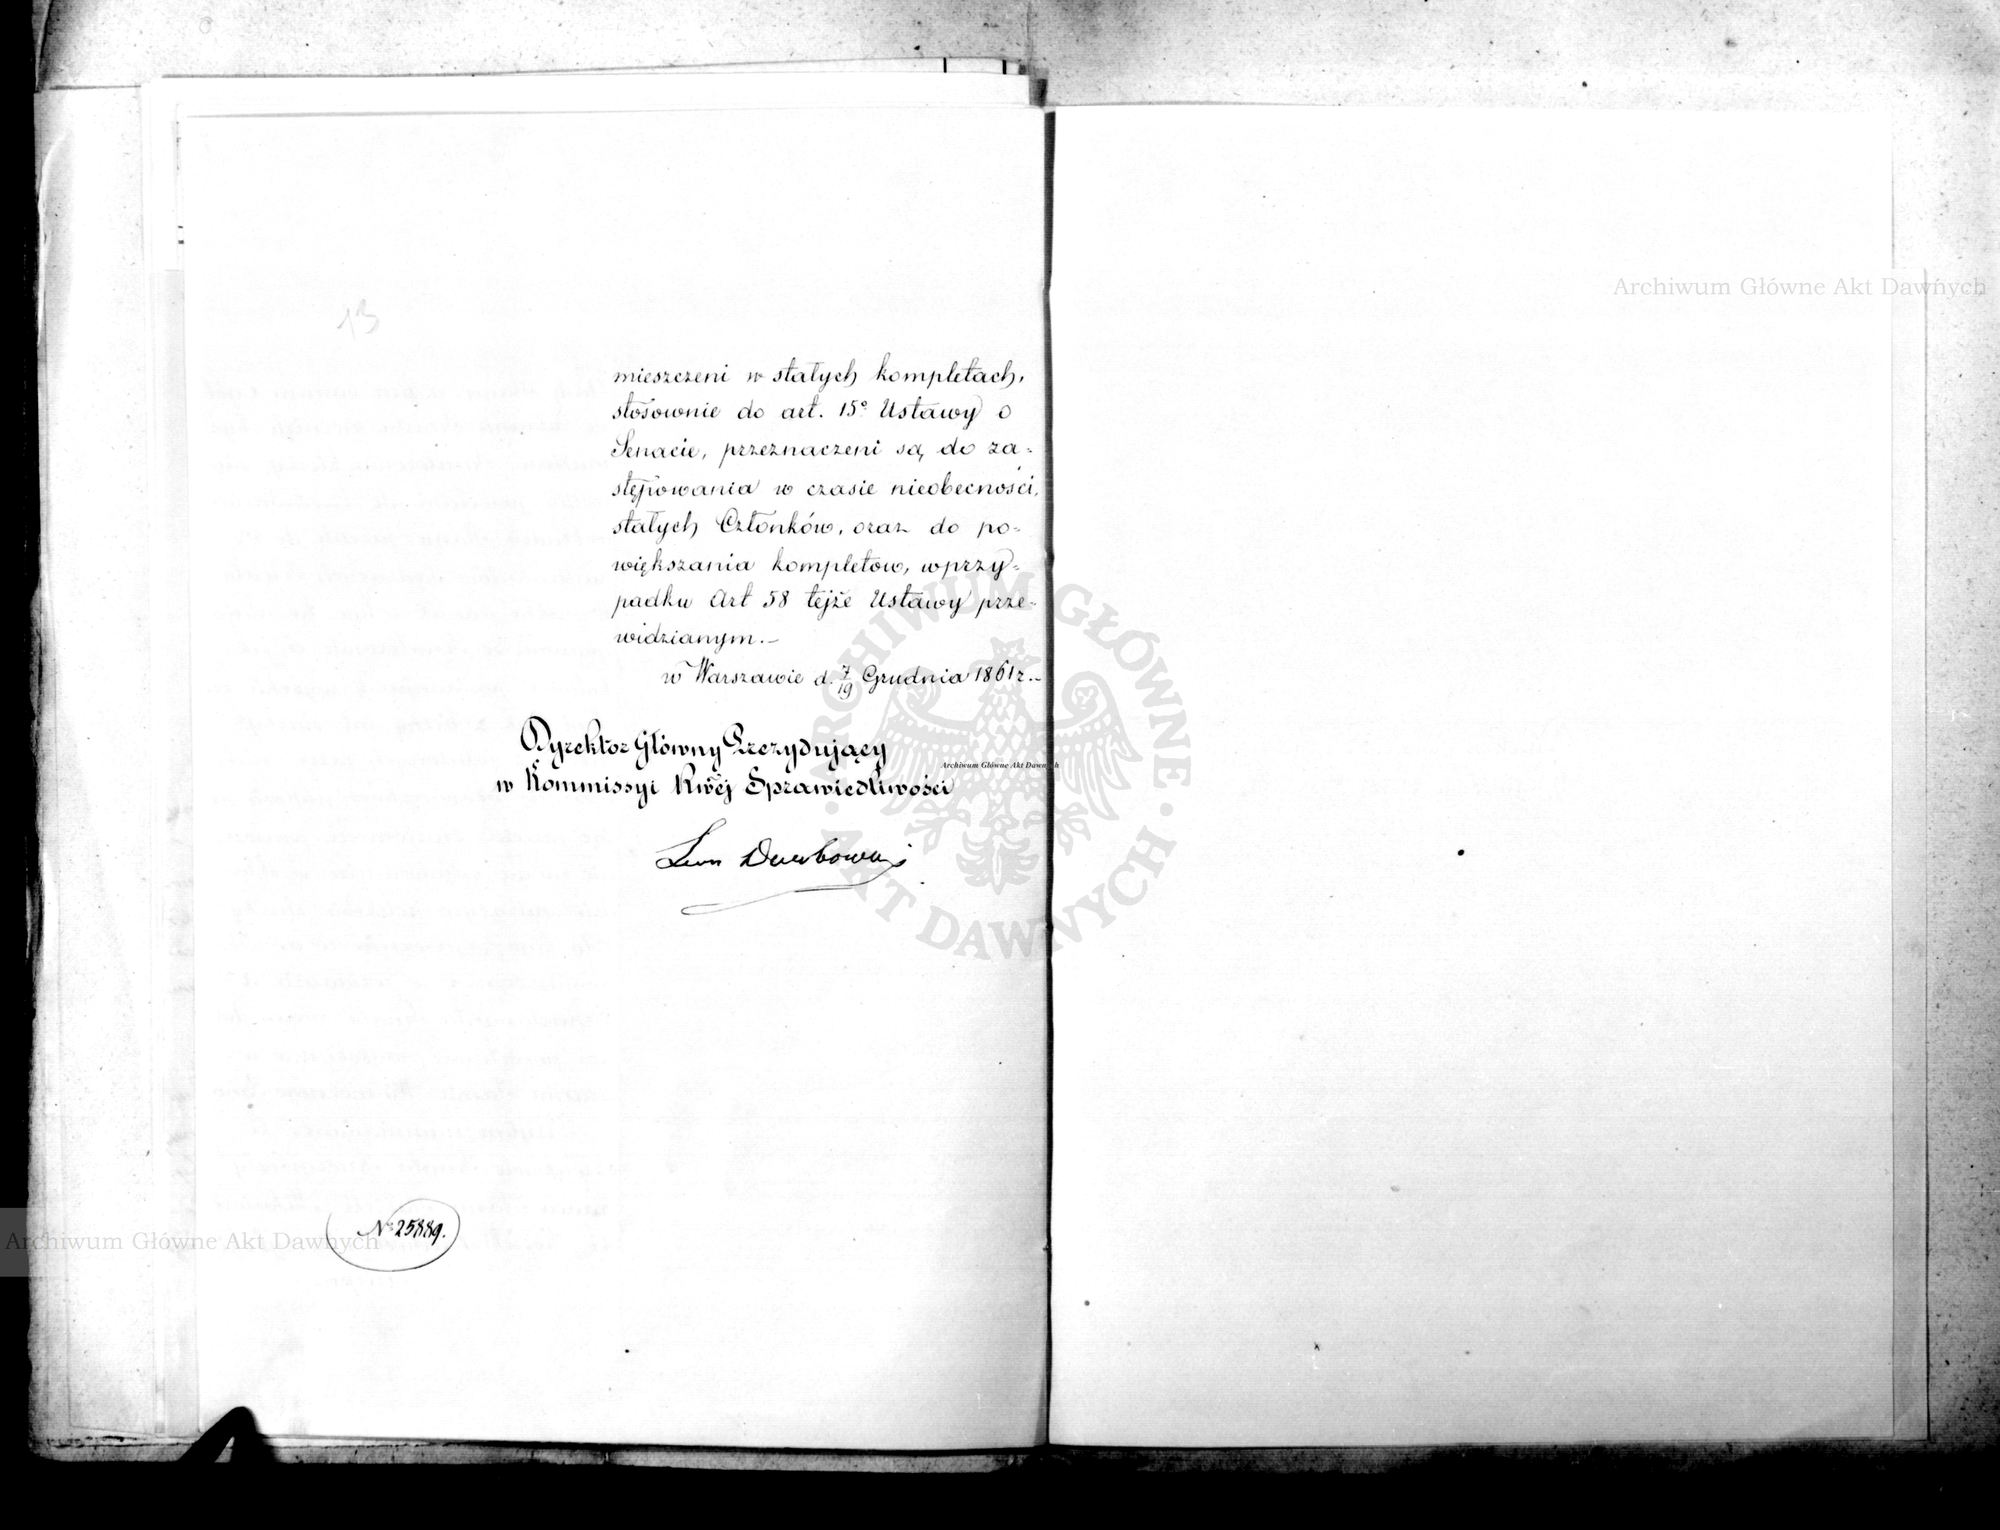 13
mieszczeni w stałych kompletach,
stosownie do art. 15º Ustawy o
Senacie, przeznaczeni są, do za-
stępowania w czasie nieobecności,
stałych Członków, oraz do po-
większania kompletów, w przy-
padku Art 58 tejże Ustawy prze-
widzianym.—
w Warszawie d. 7/19 Grudnia 1861 r.—
Dyrektor Główny Prezydujący
w Kommissyi Rwéj Sprawiedliwości
Leon Dembowski
Nº 25889.
Archiwum Główne Akt Dawnych
Archiwum Główne Akt Dawnych
Archiwum Główne Akt Dawnych
ARCHIWUM GŁÓWNE · AKT DAWNYCH ·